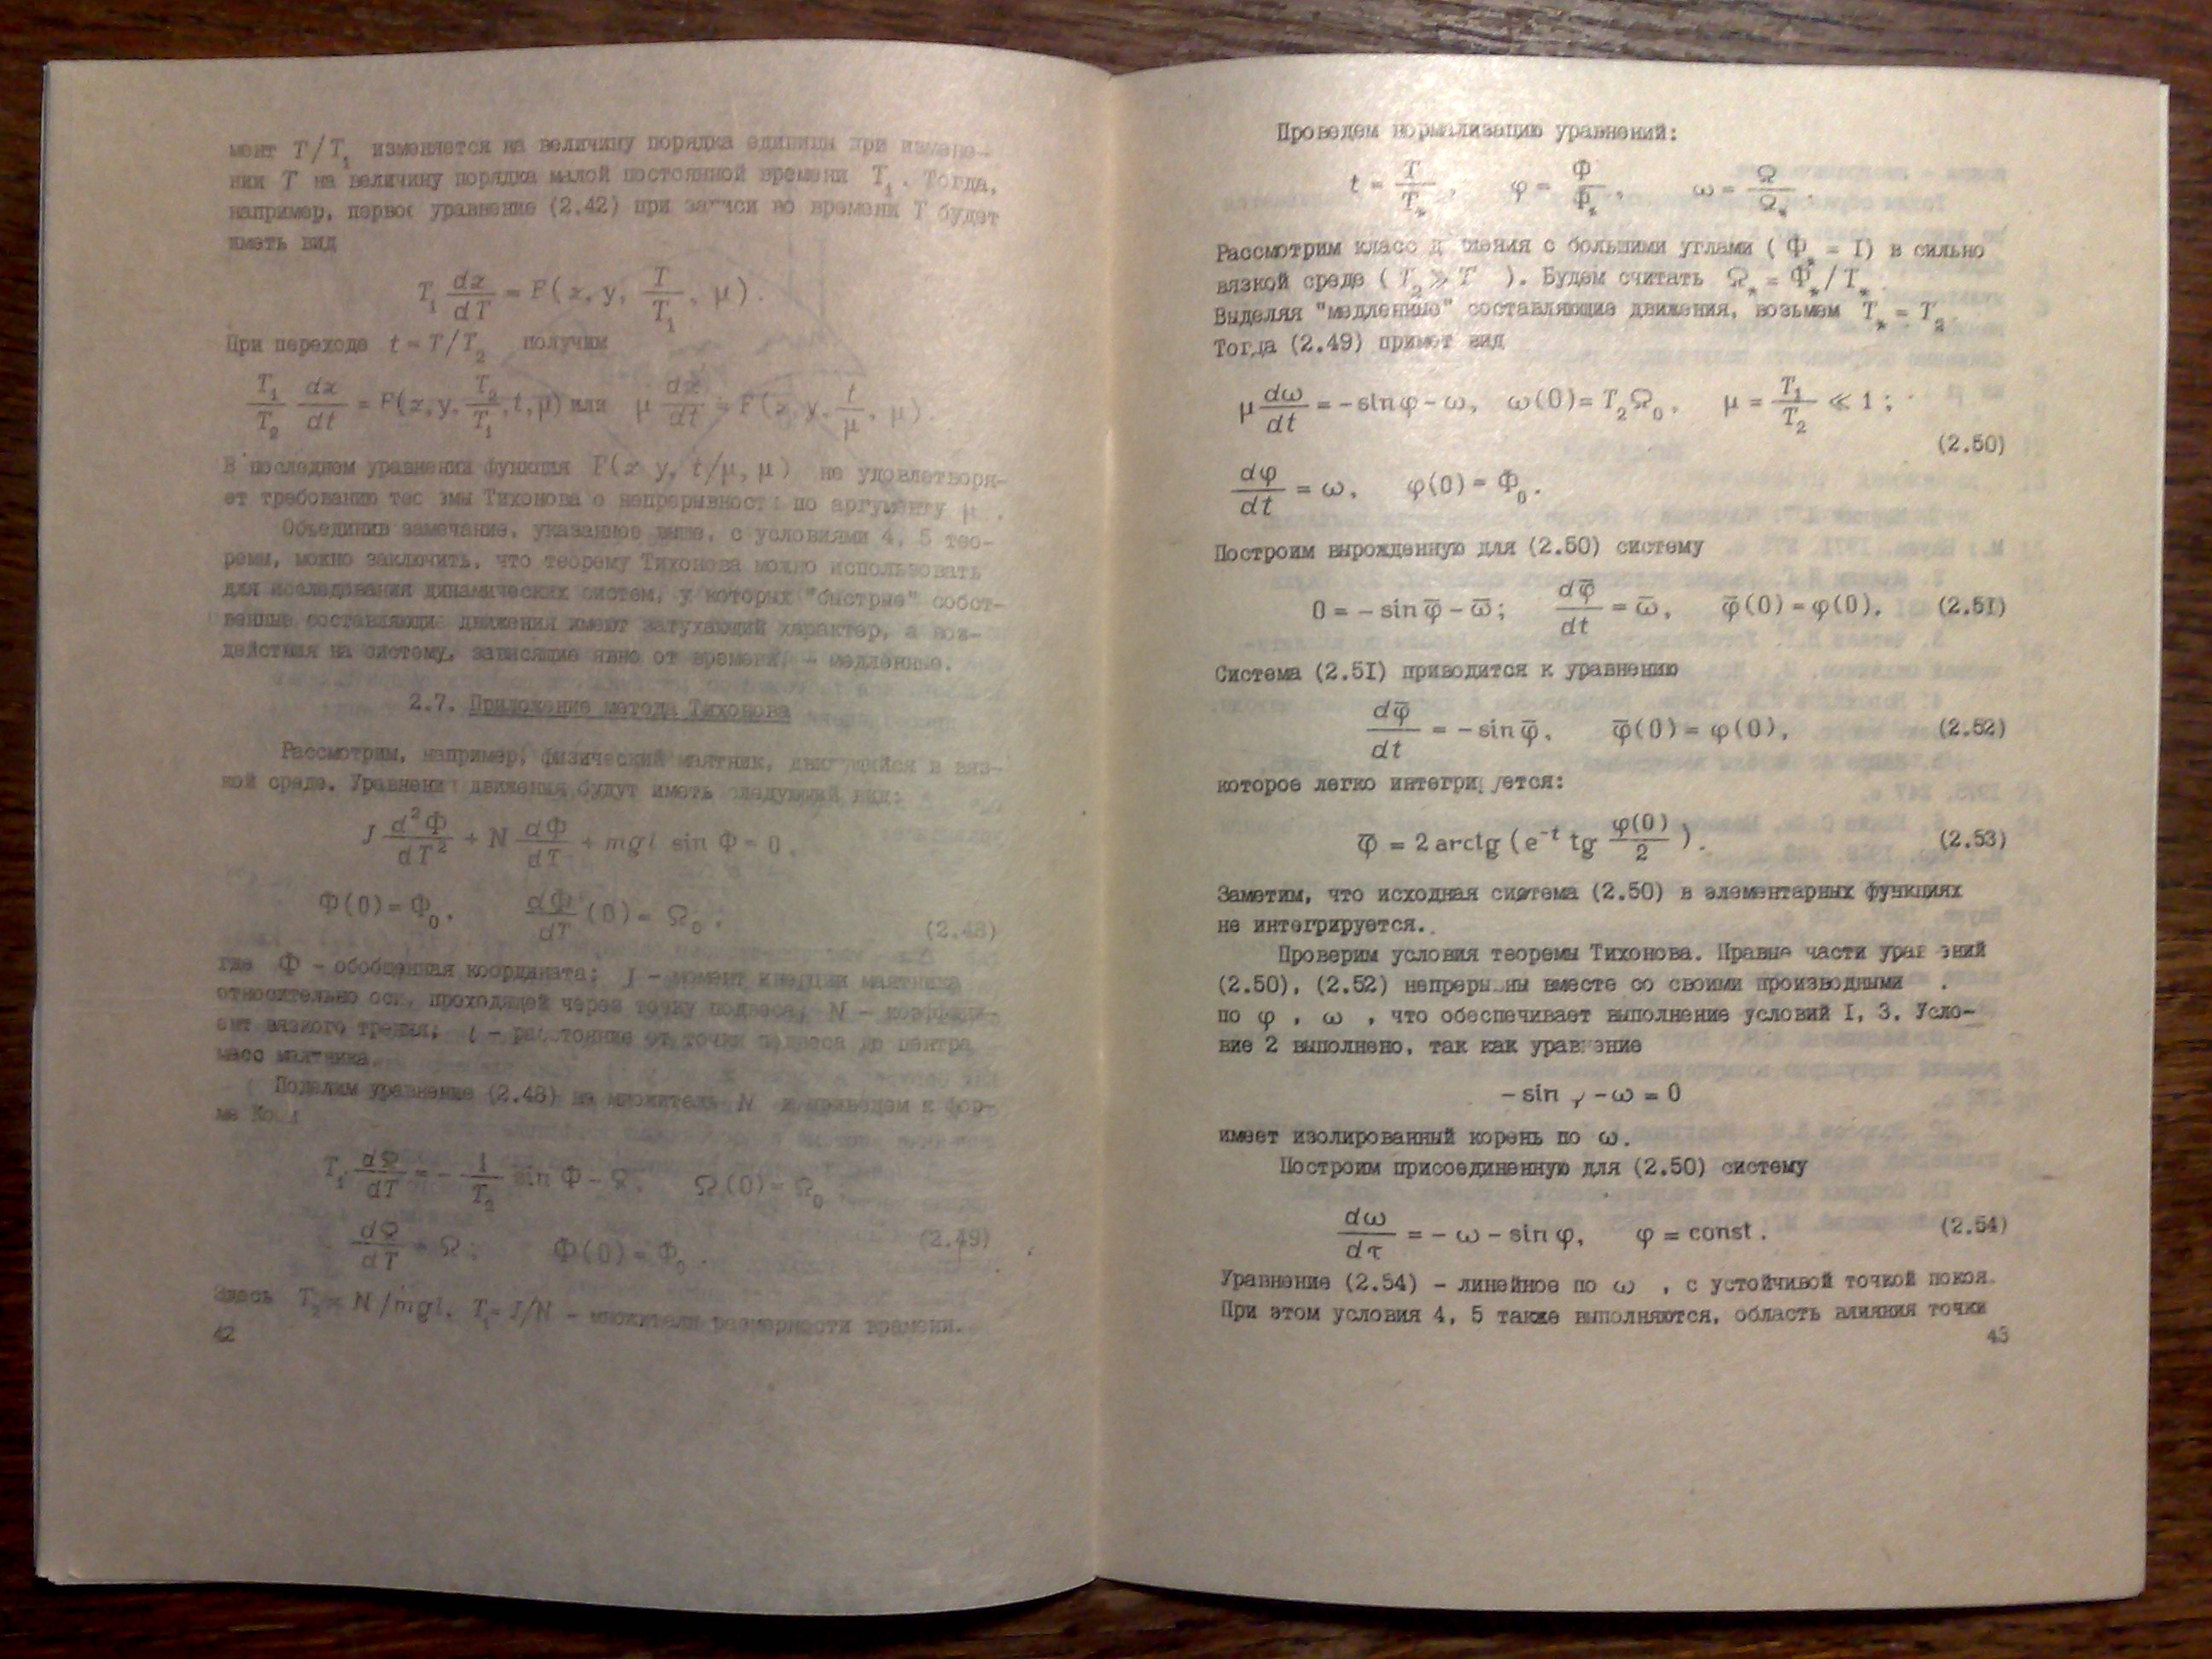 мент T/T₁ изменяется на величину порядка единицы при измене-
нии T на величину порядка малой постоянной времени T₁. Тогда,
например, первое уравнение (2.42) при записи во времени T будет
иметь вид
T₁ dz/dT = F(z, y, T/T₁, μ).
При переходе t = T/T₂ получим
T₁/T₂ dz/dt = F(z, y, T₂/T₁, t, μ) или μ dz/dt = F(z, y, t/μ, μ).
В последнем уравнении функция F(z y, t/μ, μ) не удовлетворя-
ет требованию тео емы Тихонова о непрерывности по аргументу μ.
Объединив замечание, указанное выше, с условиями 4, 5 тео-
ремы, можно заключить, что теорему Тихонова можно использовать
для исследования динамических систем, у которых "быстрые" собст-
венные составляющие движения имеют затухающий характер, а воз-
действия на систему, зависящие явно от времени, - медленные.
2.7. Приложение метода Тихонова
Рассмотрим, например, физический маятник, движущийся в вяз-
кой среде. Уравнения движения будут иметь следующий вид:
J d²Φ/dT² + N dΦ/dT + mgl sin Φ = 0,
Φ(0) = Φ₀, dΦ/dT (0) = Ω₀; (2.48)
где Φ - обобщенная координата; J - момент инерции маятника
относительно оси, проходящей через точку подвеса; N - коэффици-
ент вязкого трения; l - расстояние от точки подвеса до центра
масс маятника.
Поделим уравнение (2.48) на множитель N и приведем к фор-
ме Коши
T₁ dΩ/dT = - 1/T₂ sin Φ - Ω, Ω(0) = Ω₀;
dΩ/dT = Ω; Φ(0) = Φ₀. (2.49)
Здесь T₂ = N/mgl, T₁ = J/N - множители размерности времени.
42
Проведем нормализацию уравнений:
t = T/T*, φ = Φ/Φ*, ω = Ω/Ω*.
Рассмотрим класс д жения с большими углами (Φ* = I) в сильно
вязкой среде (T₂ ≫ T ). Будем считать Ω* = Φ*/T*.
Выделяя "медленные" составляющие движения, возьмем T* = T₂
Тогда (2.49) примет вид
μ dω/dt = - sin φ - ω, ω(0) = T₂Ω₀, μ = T₁/T₂ ≪ 1;
(2.50)
dφ/dt = ω, φ(0) = Φ₀.
Построим вырожденную для (2.50) систему
0 = - sin φ̄ - ω̄; dφ̄/dt = ω̄, φ̄(0) = φ(0). (2.5I)
Система (2.5I) приводится к уравнению
dφ̄/dt = - sin φ̄, φ̄(0) = φ(0), (2.52)
которое легко интегрируется:
φ̄ = 2 arctg (e⁻ᵗ tg φ(0)/2). (2.53)
Заметим, что исходная система (2.50) в элементарных функциях
не интегрируется.
Проверим условия теоремы Тихонова. Правые части урав ений
(2.50), (2.52) непрерывны вместе со своими производными
по φ , ω , что обеспечивает выполнение условий I, 3. Усло-
вие 2 выполнено, так как уравнение
- sin γ - ω = 0
имеет изолированный корень по ω.
Построим присоединенную для (2.50) систему
dω/dτ = - ω - sin φ, φ = const. (2.54)
Уравнение (2.54) - линейное по ω , с устойчивой точкой покоя.
При этом условия 4, 5 также выполняются, область влияния точки
43